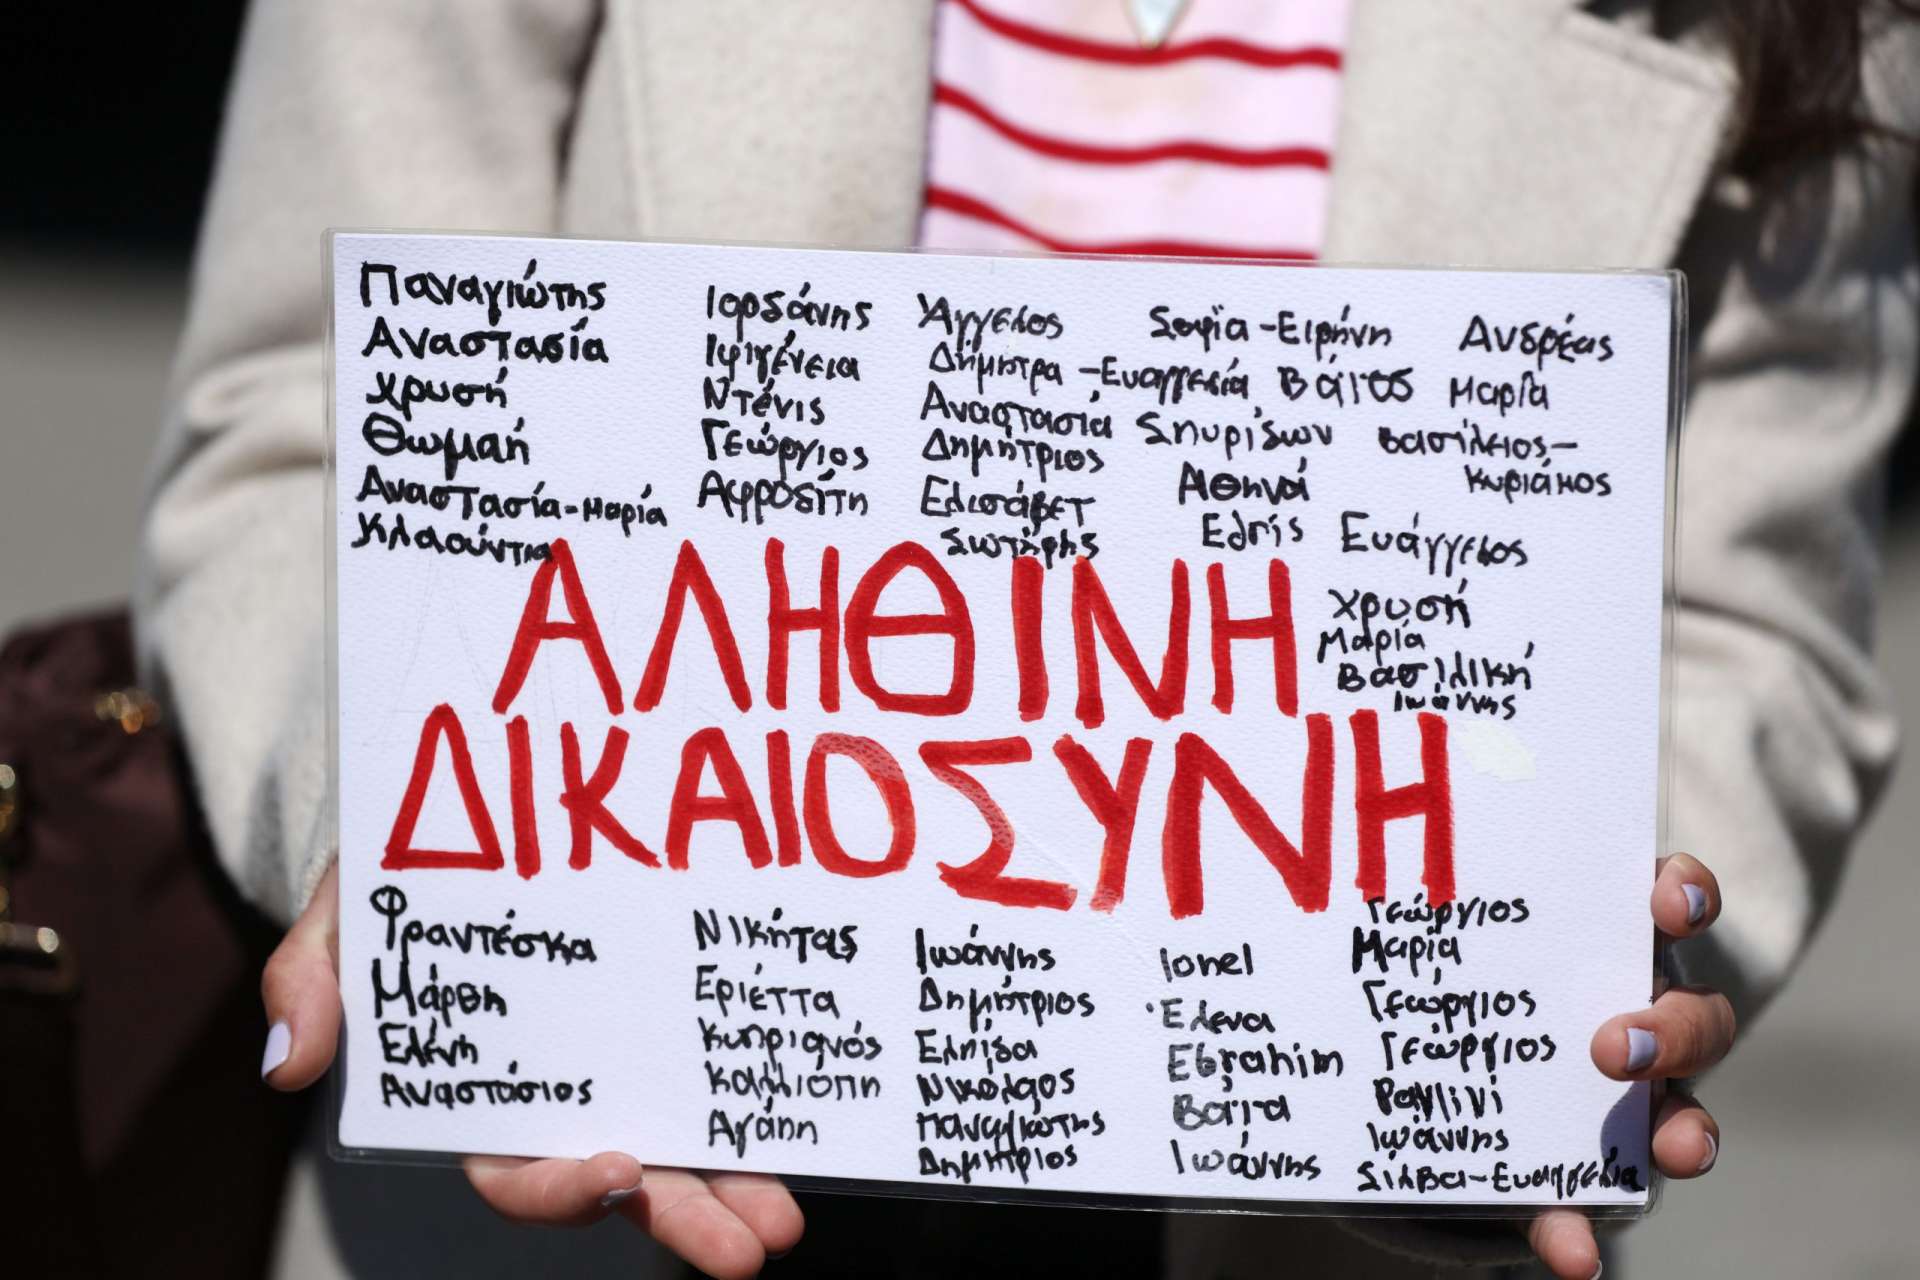 Παναγιώτης
Αναστασία
Χρυσή
Θωμαή
Αναστασία-Μαρία
Κλαούντια
Ιορδάνης
Ιφιγένεια
Ντένις
Γεώργιος
Αφροδίτη
Άγγελος
Δήμητρα-Ευαγγελία
Αναστασία
Δημήτριος
Ελισάβετ
Σωτήρης
Σοφία-Ειρήνη
Βάιος
Σπυρίδων
Αθηνά
Ελπίς
Ανδρέας
Μαρία
Βασίλειος-
Κυριάκος
Ευάγγελος
Χρυσή
Μαρία
Βασιλική
Ιωάννης
ΑΛΗΘΙΝΗ
ΔΙΚΑΙΟΣΥΝΗ
Φραντέσκα
Μάρθη
Ελένη
Αναστάσιος
Νικήτας
Εριέττα
Κυπριανός
Καλλιόπη
Αγάπη
Ιωάννης
Δημήτριος
Ελπίδα
Νικόλαος
Παναγιώτης
Δημήτριος
Ionel
Έλενα
Ebrahim
Βάια
Ιωάννης
Γεώργιος
Μαρία
Γεώργιος
Γεώργιος
Pavlini
Ιωάννης
Σίλβα-Ευαγγελία